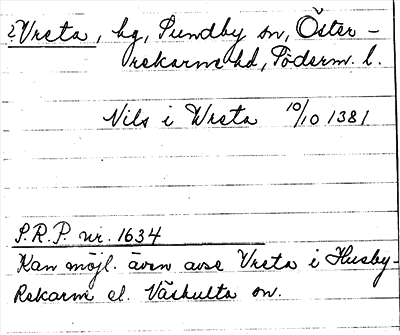 ?Vreta, hg, Sundby sn, Öster-
rekarne hd, Söderm. l.
Nils i Wreta 10/10 1381
S.R.P. nr. 1634
Kan möjl. även avse Vreta i Husby-
Rekarne el. Väshulta sn.